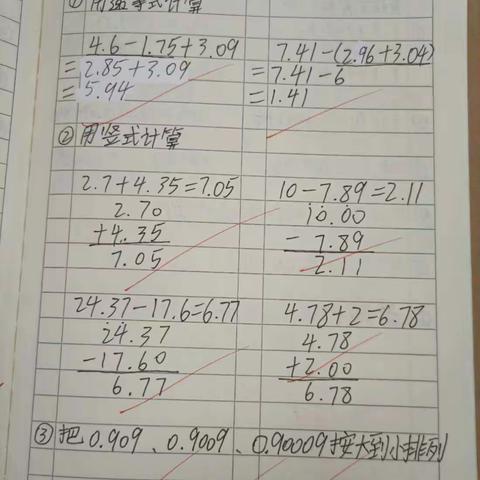 ①用递等式计算
4.6-1.75+3.09 7.41-(2.96+3.04)
=2.85+3.09 =7.41-6
=5.94 =1.41
②用竖式计算
2.7+4.35=7.05 10-7.89=2.11
2.70 10.00
+4.35 -7.89
7.05 2.11
24.37-17.6=6.77 4.78+2=6.78
24.37 4.78
-17.60 +2.00
6.77 6.78
③把0.909、0.9009、0.90009按大到小排列